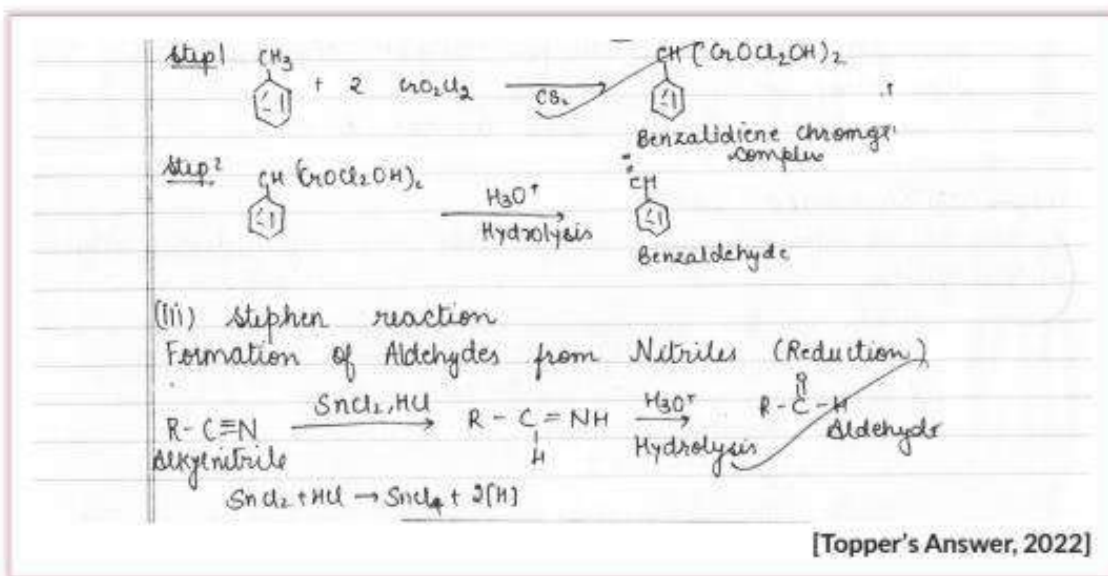 Step1 CH3 + 2 CrO2Cl2 CS2 CH(CrOCl2OH)2
Benzalidiene chromge
complex
Step2 CH(CrOCl2OH)2 H3O+ Hydrolysis CH
Benzaldehyde
(iii) Stephen reaction
Formation of Aldehydes from Nitriles (Reduction)
R-C≡N SnCl2, HCl R-C=NH H3O+ R-C-H
H Hydrolysis O Aldehyde
Alkylenitrile
SnCl2 + HCl → SnCl4 + 2[H]
[Topper's Answer, 2022]